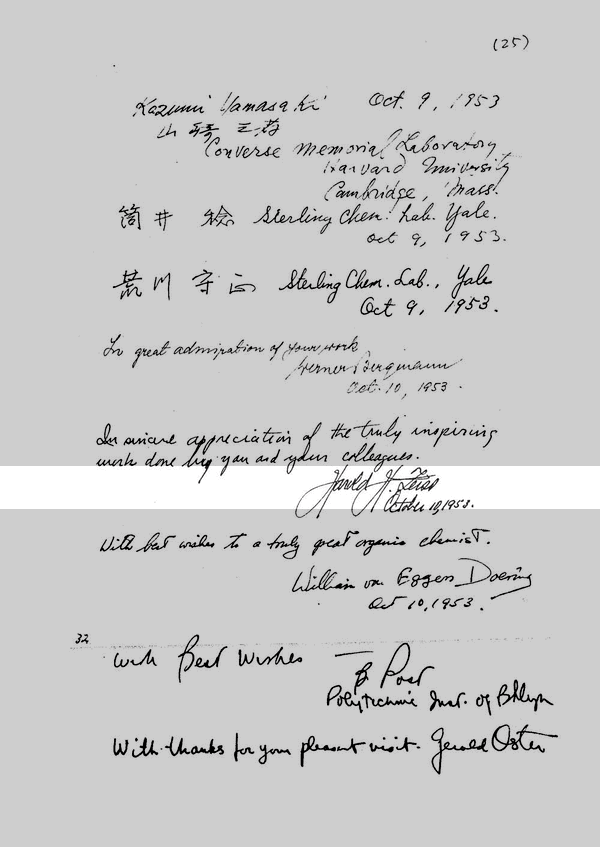 (25)
Kazumi Yamasaki Oct. 9, 1953
山崎
Converse Memorial Laboratory,
Harvard University
Cambridge, Mass.
筒井 稔 Sterling Chem. Lab. Yale.
Oct 9, 1953.
荒川 守正 Sterling Chem. Lab., Yale
Oct 9, 1953.
In great admiration of your work
Werner Bergmann
Oct. 10, 1953.
In sincere appreciation of the truly inspiring
work done by you and your colleagues.
Harold H. Zeiss
October 10, 1953.
With best wishes to a truly great organic chemist.
William von Eggers Doering
Oct 10, 1953.
32
With Best Wishes — B Post
Polytechnic Inst. of Bklyn
With thanks for your pleasant visit. Gerald Oster